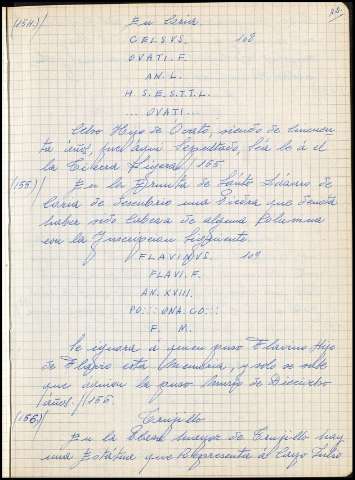 25.
(154)/ En Coria.
CELSVS. 108
OVATI. F.
AN. L.
H S. E. S. T. T. L.
... OVATI....
Celso Hijo de Ovato, siendo de cincuen
ta años, fue aqui Sepultado, Sea le á el
la tierra ligera // 155
(155)/ En la Ermita de Santo Lázaro de
Coria se descubrio una Piedra que denota
haber sido cabeza de alguna Columna
con la Inscripcion Siguiente.
FLAVINVS. 109
FLAVI. F.
AN. XVIII.
PO::: ONA. CO:::
F. M.
Se ignora á quien puso Flavino Hijo
de Flavio esta Memoria, y solo se sabe
que quien la puso Murió de Dieciocho
años. // 156.
(156)/ Trujillo
En la Plaza mayor de Trujillo hay
una Estátua que Representa á Cayo Julio